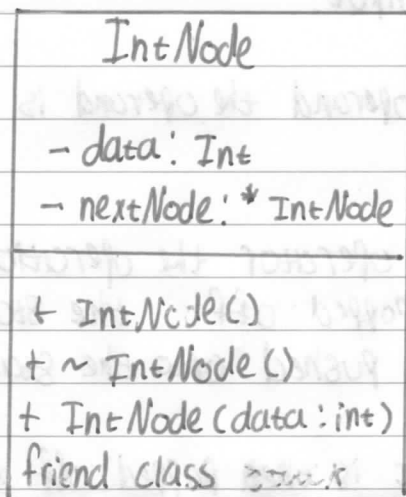 IntNode
- data: Int
- nextNode: * IntNode
+ IntNode()
+ ~ IntNode()
+ IntNode(data: int)
friend class